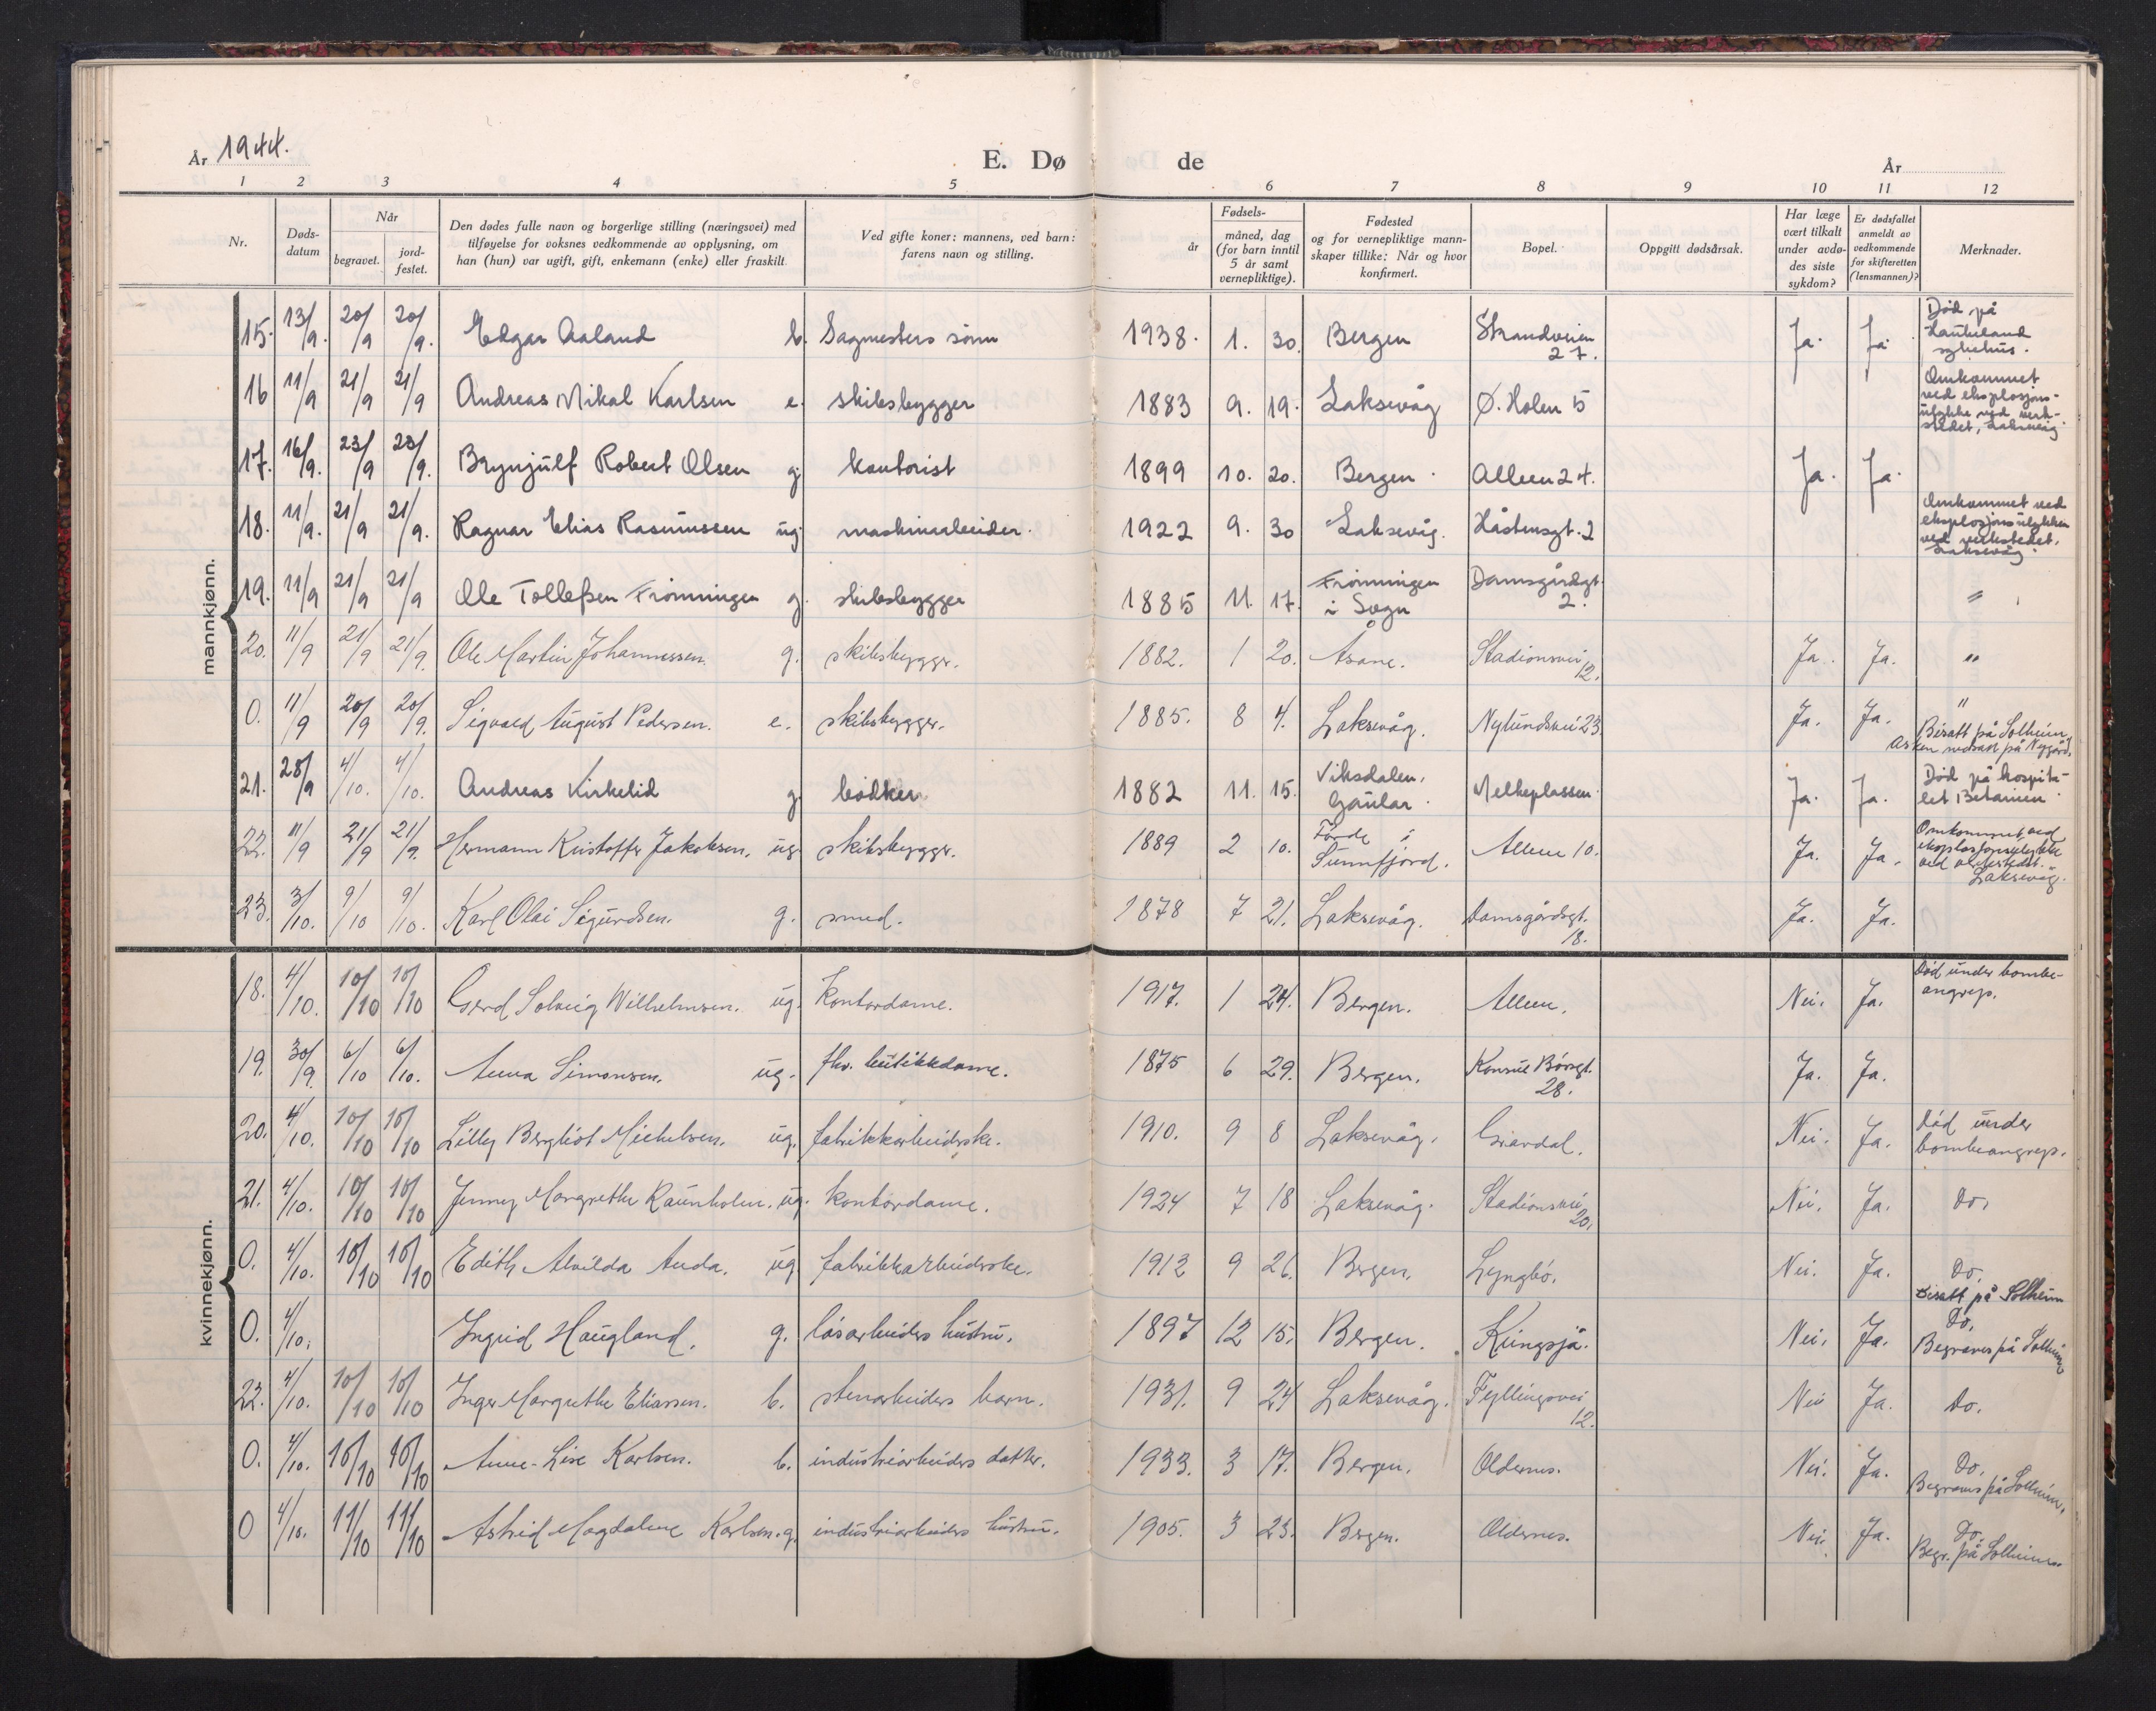 År 1944. E. Dø de År
1 2 3 4 5 6 7 8 9 10 11 12
Nr. Døds-datum Når begravet. jord-festet. Den dødes fulle navn og borgerlige stilling (næringsvei) med tilføyelse for voksnes vedkommende av opplysning, om han (hun) var ugift, gift, enkemann (enke) eller fraskilt Ved gifte koner: mannens, ved barn: farens navn og stilling. år Fødsels-måned, dag (for barn inntil 5 år samt vernepliktige). Fødested og for vernepliktige mann-skaper tillike: Når og hvor konfirmert. Bopel. Oppgitt dødsårsak. Har læge vært tilkalt under avdø-des siste sykdom? Er dødsfallet anmeldt av vedkommende for skifteretten (lensmannen)? Merknader.
mannkjønn.
15. 13/9. 20/9 20/9. Edgar Aaland b. Sagmesters sönn 1938. 1. 30. Bergen Strandveien 27. Ja. Ja. Död på Haukeland sykehus.
16 11/9 21/9 21/9 Andreas Mikal Karlsen e. skibsbygger 1883 9. 19. Laksevåg Ø. Holen 5 Omkommet ved eksplosjons-ulykke ved verk-stedet, Laksevåg.
17. 16/9. 23/9 23/9. Brynjulf Robert Olsen g. kontorist 1899 10. 20. Bergen Alleen 24. Ja. Ja. 
18. 11/9. 21/9 21/9. Ragnar Elias Rasmussen ug. maskinarbeider. 1922 9. 30 Laksevåg. Håstensgt. 2 Omkommet ved eksplosjonsulykken ved verkstedet, Laksevåg.
19. 11/9 21/9 21/9 Ole Tollefsen Frönningen g. skibsbygger 1885 11. 17. Frönningen i Sogn Damsgårdsgt. 2. "
20. 11/9 21/9 21/9. Ole Martin Johannessen. g. skibsbygger. 1882. 1 20. Åsane. Stadionsvei 12. Ja. Ja. "
0. 11/9 20/9 20/9. Sigvald August Pedersen. e. skibsbygger. 1885. 8 4. Laksevåg. Nylundsvei 23. Ja. Ja. " Bisatt på Solheim, Asken nedsatt på Nygård.
21. 28/9 4/10. 4/10. Andreas Kirkelid g. bödker 1882 11. 15. Viksdalen, Gaular. Melkeplassen. Ja. Ja. Död på hospita-let Betanien.
22. 11/9 21/9 21/9. Hermann Kristoffer Jakobsen. ug. skibsbygger. 1889 2 10. Förde i Sunnfjord. Alleen 10. Ja. Ja. Omkommet ved eksplosjonsulykke ved verkstedet. Laksevåg.
23. 3/10. 9/10 9/10. Karl Olai Sigurdsen. g. smed. 1878 7 21. Laksevåg. Damsgårdsgt. 18. Ja. Ja.
kvinnekjønn.
18. 4/10. 10/10 10/10 Gerd Solveig Wilhelmsen. ug. Kontordame. 1917. 1 24. Bergen. Alleen. Nei. Ja. Död under bombe-angrep.
19. 30/9. 6/10 6/10. Anna Simonsen. ug. fhv. butikkdame. 1875 6 29. Bergen. Konsul Börsgt. 28. Ja. Ja.
20. 4/10. 10/10 10/10 Lilly Bergliot Michelsen. ug. fabrikkarbeiderske. 1910. 9 8 Laksevåg. Gravdal. Nei. Ja. Död under bombeangrep.
21. 4/10. 10/10 10/10 Jenny Margrethe Raunholm. ug. kontordame. 1924 7 18 Laksevåg. Stadionsvei 20. Nei. Ja. Do.
0. 4/10. 10/10 10/10 Edith Alvilda Anda. ug. fabrikkarbeiderske. 1912 9 26. Bergen. Lyngbö. Nei. Ja. Do. Bisatt på Solheim
0. 4/10. Ingrid Haugland. g. lösarbeiders hustru. 1897 12 15. Bergen. Kringsjå. Nei. Ja. Do. Begraves på Solheim
22. 4/10. 10/10 10/10 Inger Margrethe Eliassen. b. stenarbeiders barn. 1931. 9 24 Laksevåg. Fyllingsvei 12. Nei Ja. Do.
0. 4/10. 10/10 10/10 Anne-Lise Karlsen. b. industriarbeiders datter. 1933. 3 17. Bergen. Oldernes. Nei. Ja. Do. Begraves på Solheim.
0 4/10. 11/10 11/10 Astrid Magdalene Karlsen. g. industriarbeiders hustru. 1905. 3 23. Bergen. Oldernes. Nei. Ja. Do. Begr. på Solheim.